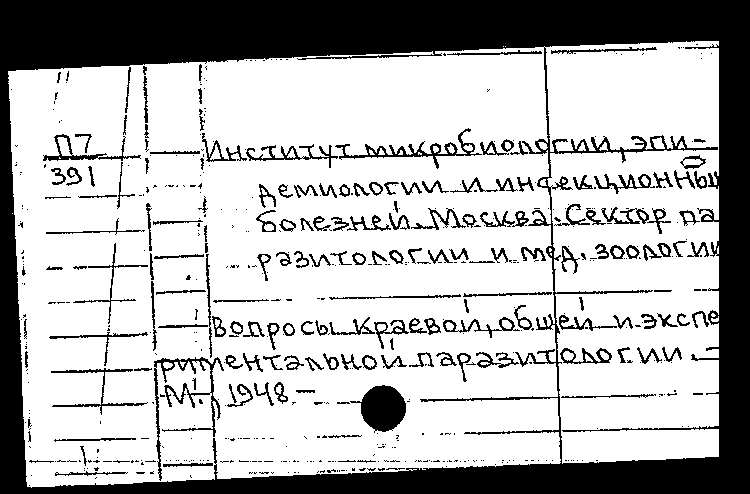 П7
391
Институт микробиологии, эпи-
демиологии и инфекционны
болезней. Москва. Сектор па
разитологии и мед. зоологии
Вопросы краевой, общей и экспе
риментальной паразитологии. –
М., 1948 –